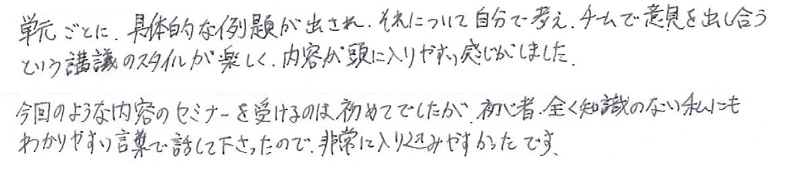 単元ごとに、具体的な例題が出され、それについて自分で考え、チームで意見を出し合う
という講議のスタイルが楽しく、内容が頭に入りやすい感じがしました。
今回のような内容のセミナーを受けるのは初めてでしたが、初心者・全く知識のない私にも
わかりやすい言葉で話して下さったので、非常に入り込みやすかったです。